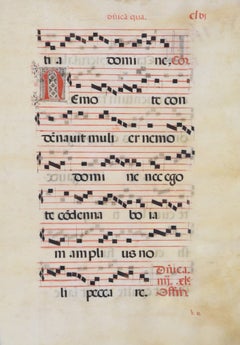 Dñica qua. clvi
tia domine. Cõi
Nemo te con
dẽnavit mulier nemo
domine nec ego
te cõdẽnna bo ia
m amplius no
li peccare. Dñica
iiij. xl.
Offm̃